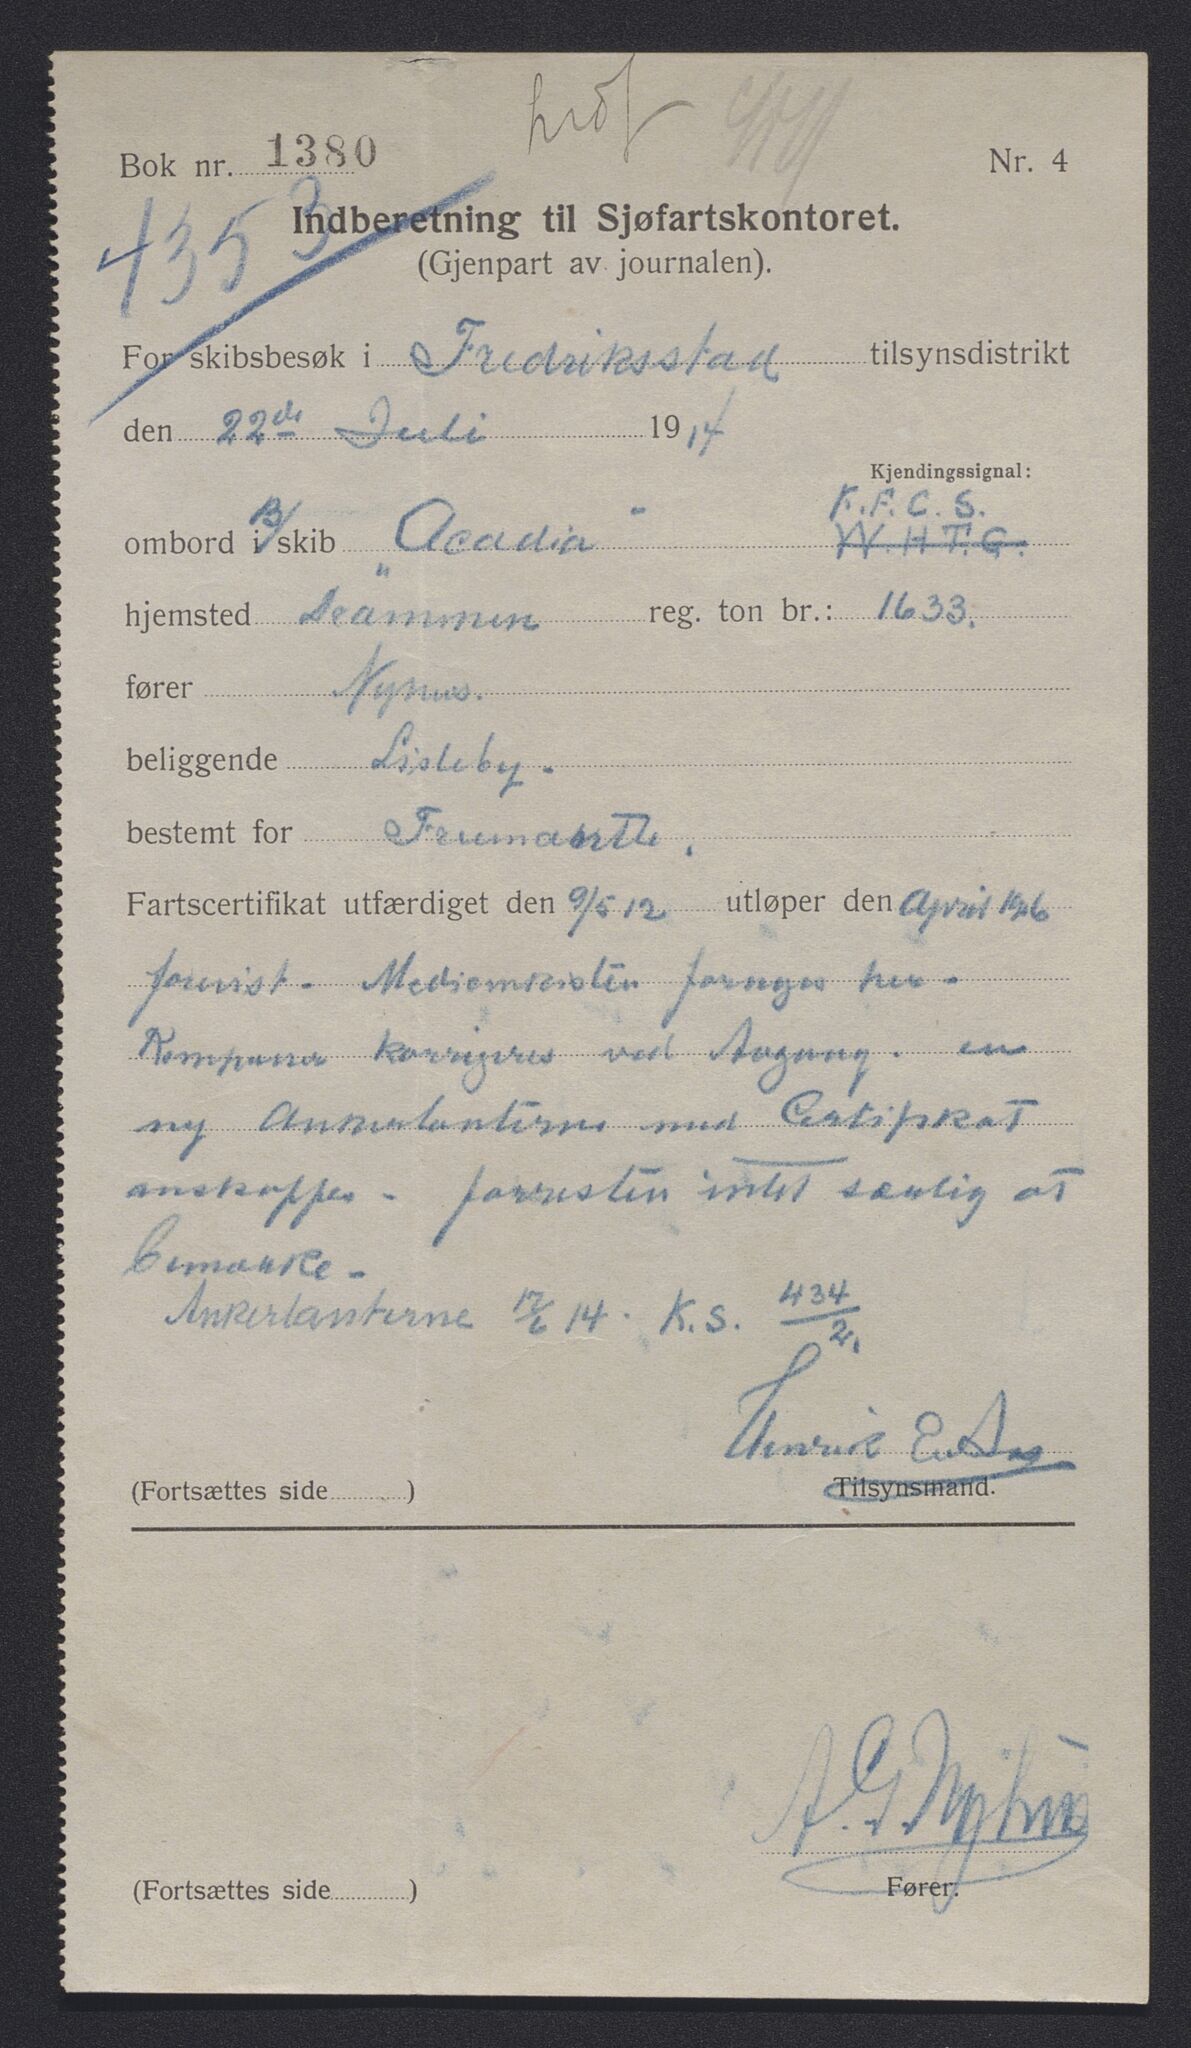 Bok nr. 1380
Nr. 4
4353
Indberetning til Sjøfartskontoret.
(Gjenpart av journalen).
For skibsbesøk i Fredriksstad tilsynsdistrikt
den 22de Juli 1914
Kjendingssignal:
K.F.C.S.
ombord i B/skib "Acadia" W.H.T.G.
hjemsted Drammen reg. ton br.: 1633.
fører
beliggende Lisleby.
bestemt for
Fartscertifikat utfærdiget den 9/5 12 utløper den April 1916
forevist. Medicinkisten fornyes her.
Kompasser korrigeres ved Avgang. en
ny Ankerlanterne med Certifikat
anskaffes. forresten intet særlig at
bemærke.
Ankerlanterne 17/6 14. K.S. 434/2.
Henrik E. Aas
(Fortsættes side )
Tilsynsmand.
(Fortsættes side )
Fører.